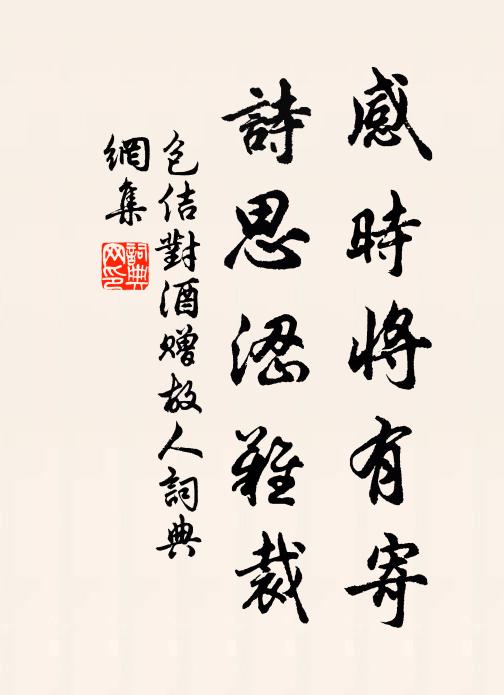 感時將有寄
詩思澀難裁
包佶對酒贈故人詞典
網集
詞典
网印